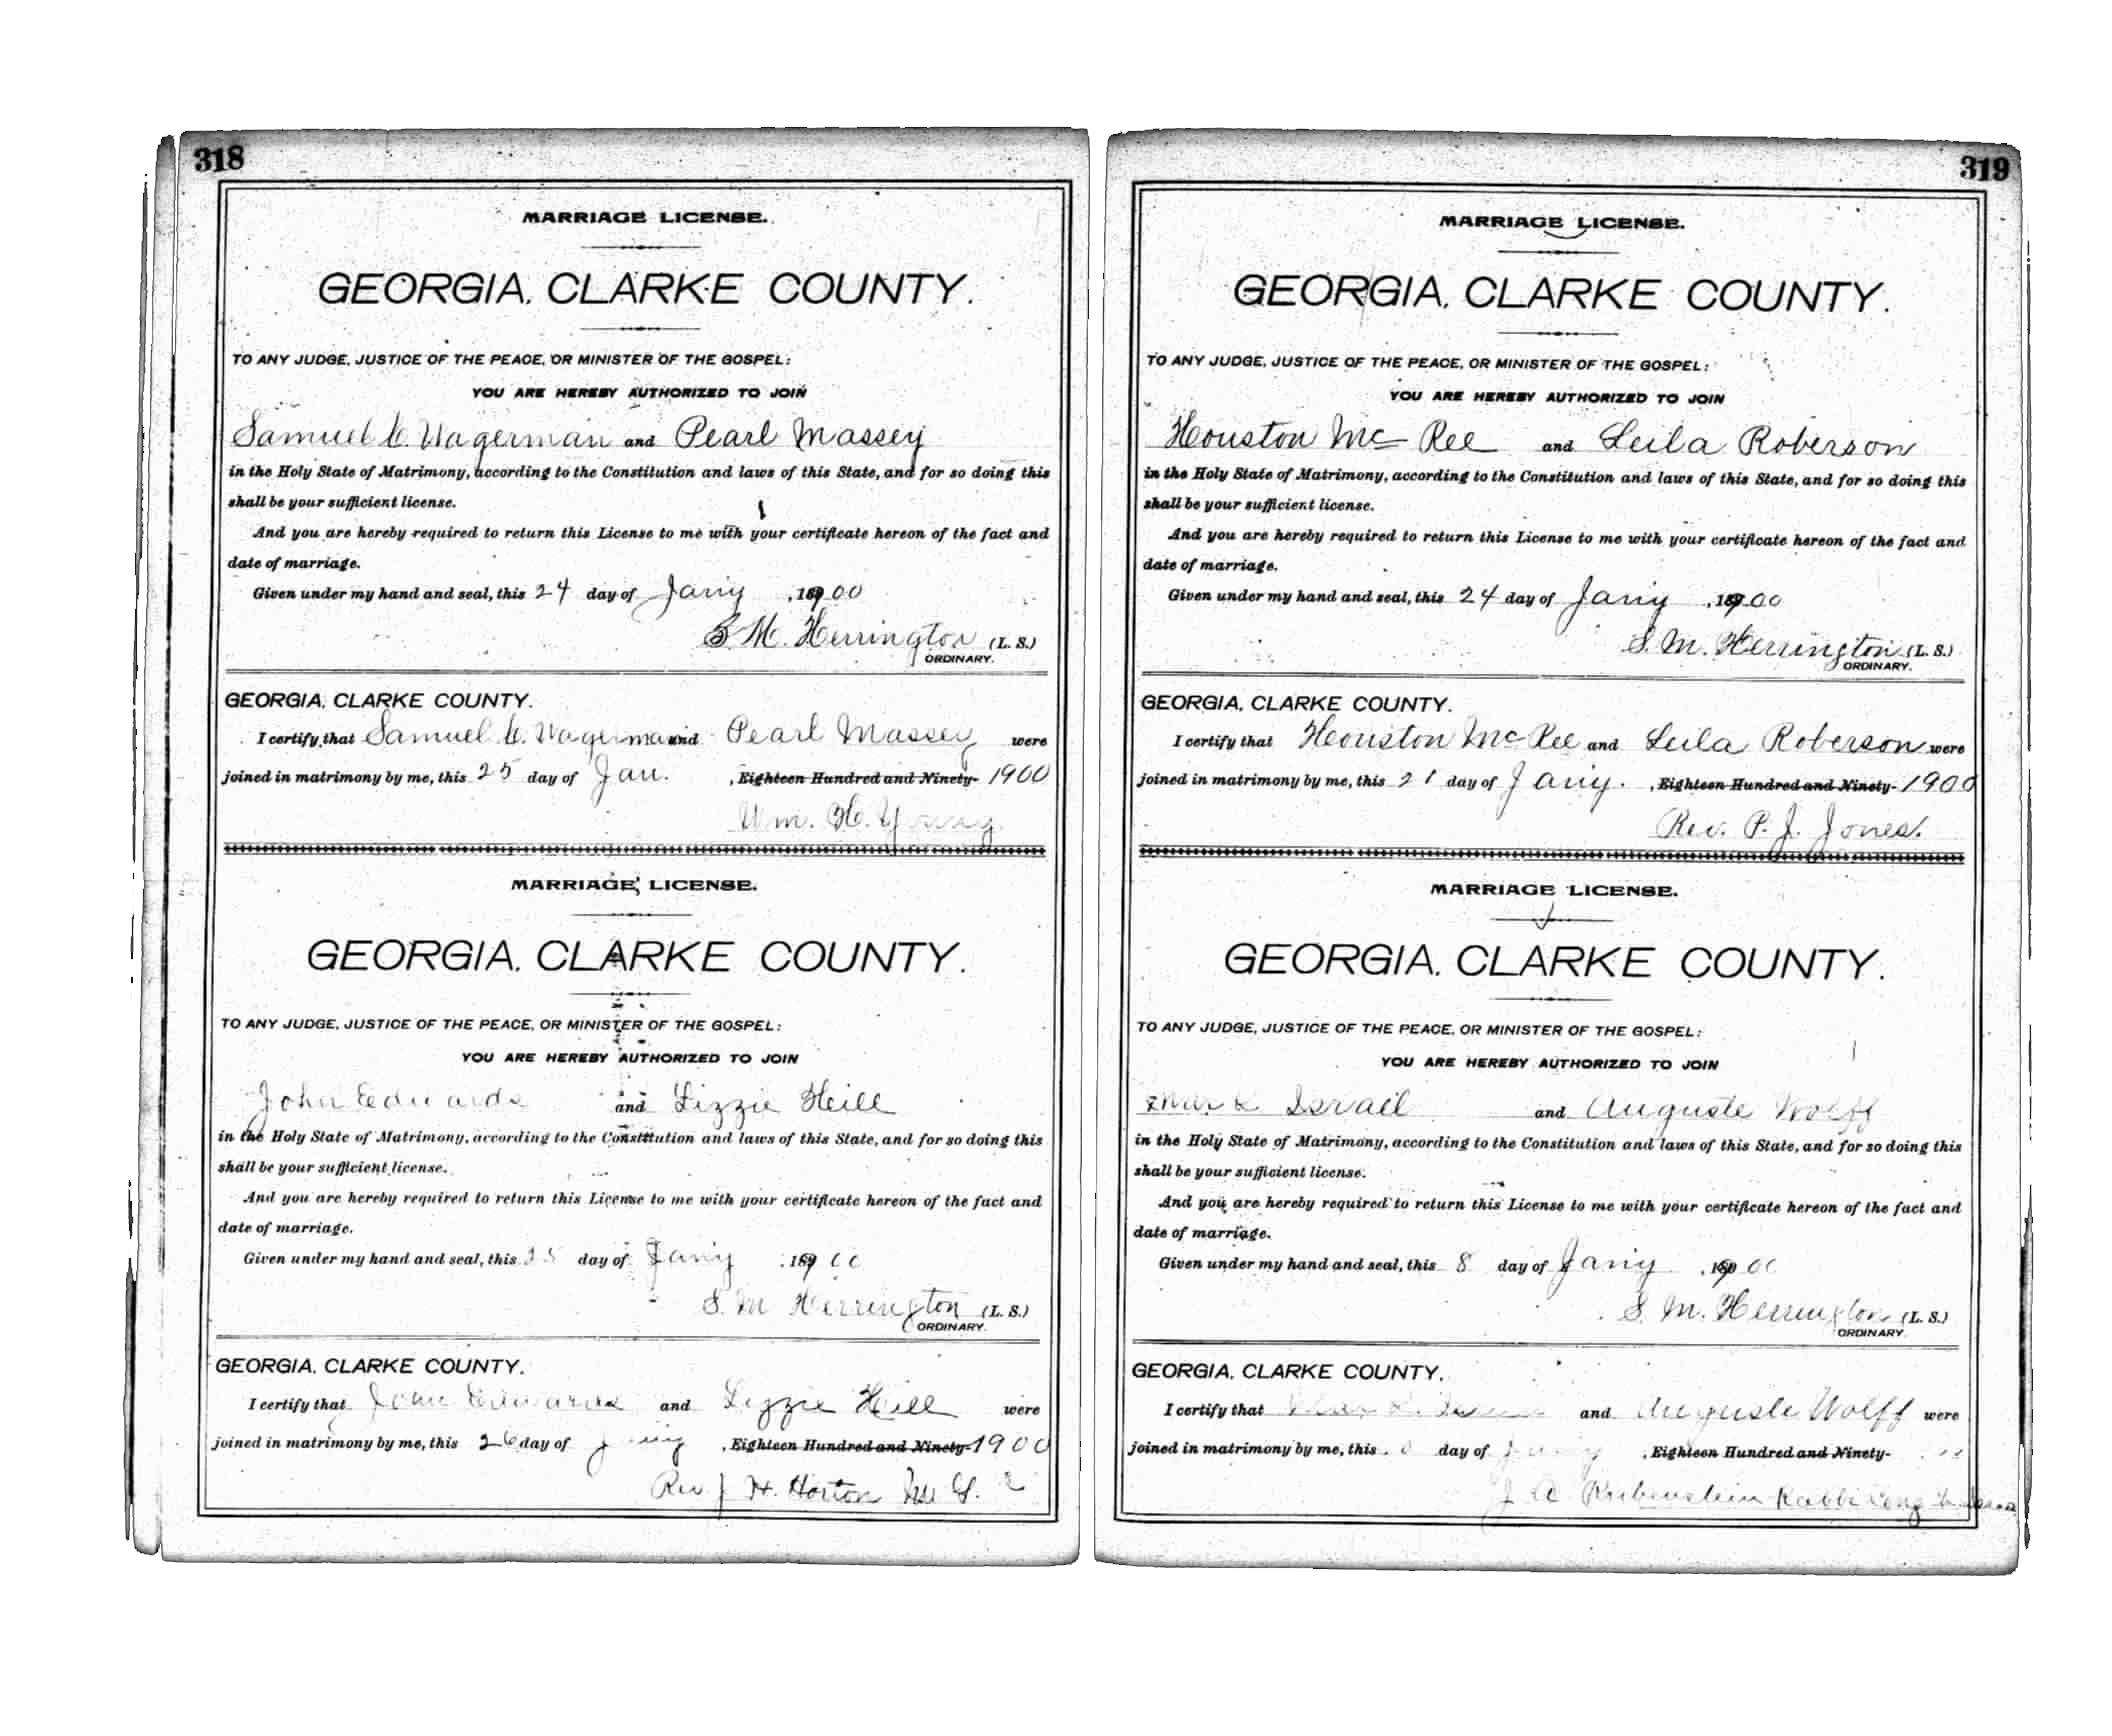 318
MARRIAGE LICENSE.
GEORGIA, CLARKE COUNTY.
TO ANY JUDGE, JUSTICE OF THE PEACE, OR MINISTER OF THE GOSPEL:
YOU ARE HEREBY AUTHORIZED TO JOIN
Samuel C. Wagerman and Pearl Massey
in the Holy State of Matrimony, according to the Constitution and laws of this State, and for so doing this
shall be your sufficient license.
And you are hereby required to return this License to me with your certificate hereon of the fact and
date of marriage.
Given under my hand and seal, this 24 day of Jany , 1900
S. M. Herrington (L. S.)
ORDINARY.
GEORGIA, CLARKE COUNTY.
I certify that Samuel C. Wagerman and Pearl Massey were
joined in matrimony by me, this 25 day of Jan. , Eighteen Hundred and Ninety- 1900
Wm. H. Young
MARRIAGE LICENSE.
GEORGIA, CLARKE COUNTY.
TO ANY JUDGE, JUSTICE OF THE PEACE, OR MINISTER OF THE GOSPEL:
YOU ARE HEREBY AUTHORIZED TO JOIN
John Edwards and Lizzie Heill
in the Holy State of Matrimony, according to the Constitution and laws of this State, and for so doing this
shall be your sufficient license.
And you are hereby required to return this License to me with your certificate hereon of the fact and
date of marriage.
Given under my hand and seal, this 25 day of Jany , 1900
S. M Herrington (L. S.)
ORDINARY.
GEORGIA, CLARKE COUNTY.
I certify that John Edwards and Lizzie Hill were
joined in matrimony by me, this 26 day of Jany , Eighteen Hundred and Ninety- 1900
Rev J H. Horton
319
MARRIAGE LICENSE.
GEORGIA, CLARKE COUNTY.
TO ANY JUDGE, JUSTICE OF THE PEACE, OR MINISTER OF THE GOSPEL:
YOU ARE HEREBY AUTHORIZED TO JOIN
Houston McRee and Leila Roberson
in the Holy State of Matrimony, according to the Constitution and laws of this State, and for so doing this
shall be your sufficient license.
And you are hereby required to return this License to me with your certificate hereon of the fact and
date of marriage.
Given under my hand and seal, this 24 day of Jany , 1900
S. M. Herrington (L. S.)
ORDINARY.
GEORGIA, CLARKE COUNTY.
I certify that Houston McRee and Leila Roberson were
joined in matrimony by me, this 21 day of Jany. , Eighteen Hundred and Ninety- 1900
Rev. P. J. Jones.
MARRIAGE LICENSE.
GEORGIA, CLARKE COUNTY.
TO ANY JUDGE, JUSTICE OF THE PEACE, OR MINISTER OF THE GOSPEL:
YOU ARE HEREBY AUTHORIZED TO JOIN
Israel and Auguste Wolff
in the Holy State of Matrimony, according to the Constitution and laws of this State, and for so doing this
shall be your sufficient license.
And you are hereby required to return this License to me with your certificate hereon of the fact and
date of marriage.
Given under my hand and seal, this 8 day of Jany , 1900
S. M. Herrington (L. S.)
ORDINARY.
GEORGIA, CLARKE COUNTY.
I certify that and Auguste Wolff were
joined in matrimony by me, this day of Jany , Eighteen Hundred and Ninety-
Rubenstein Rabbi